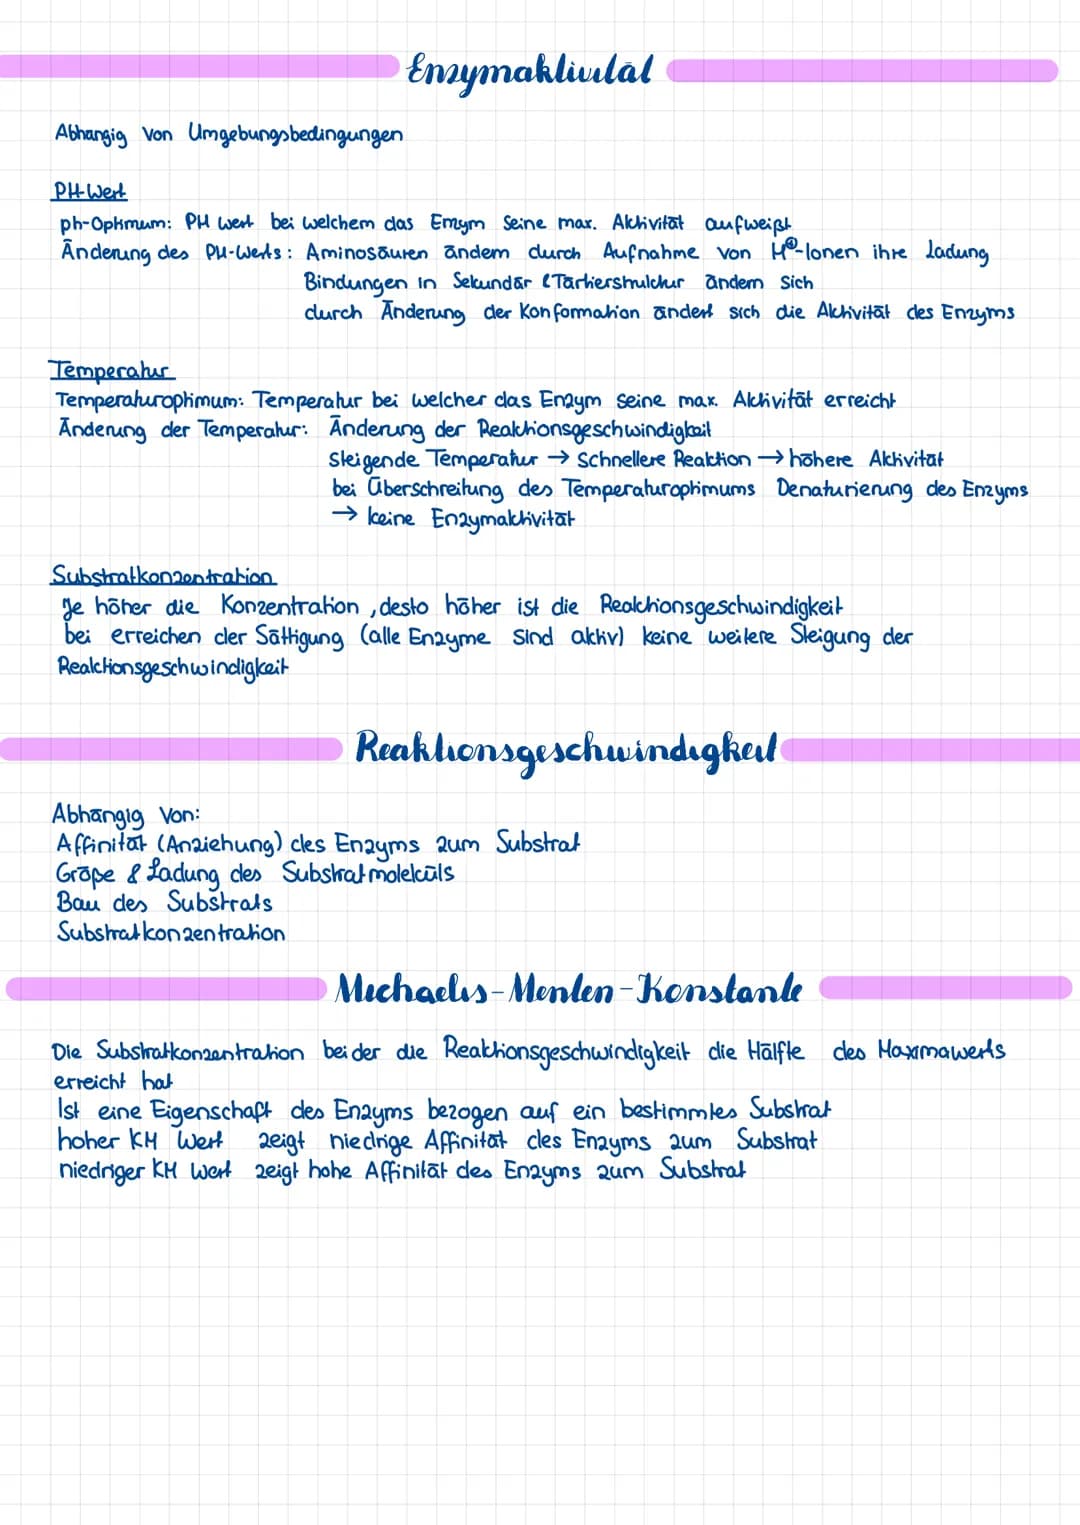 Enzymaktivität
Abhängig von Umgebungsbedingungen
PH-Wert
ph-Optimum: PH Wert bei welchem das Enzym seine max. Aktivität aufweißt
Änderung des PH-Werts: Aminosäuren ändern durch Aufnahme von H⊕-Ionen ihre Ladung
Bindungen in Sekundär & Tertiärstruktur ändern sich
durch Änderung der Konformation ändert sich die Aktivität des Enzyms
Temperatur
Temperaturoptimum: Temperatur bei welcher das Enzym seine max. Aktivität erreicht
Änderung der Temperatur: Änderung der Reaktionsgeschwindigkeit
Steigende Temperatur → schnellere Reaktion → höhere Aktivität
bei Überschreitung des Temperaturoptimums Denaturierung des Enzyms
→ keine Enzymaktivität
Substratkonzentration
Je höher die Konzentration, desto höher ist die Reaktionsgeschwindigkeit
bei erreichen der Sättigung (alle Enzyme sind aktiv) keine weitere Steigung der
Reaktionsgeschwindigkeit
Reaktionsgeschwindigkeit
Abhängig von:
Affinität (Anziehung) des Enzyms zum Substrat
Größe & Ladung des Substratmoleküls
Bau des Substrats
Substratkonzentration
Michaelis-Menten-Konstante
Die Substratkonzentration bei der die Reaktionsgeschwindigkeit die Hälfte des Maximawerts
erreicht hat
Ist eine Eigenschaft des Enzyms bezogen auf ein bestimmtes Substrat
hoher KM Wert zeigt niedrige Affinität des Enzyms zum Substrat
niedriger KM Wert zeigt hohe Affinität des Enzyms zum Substrat